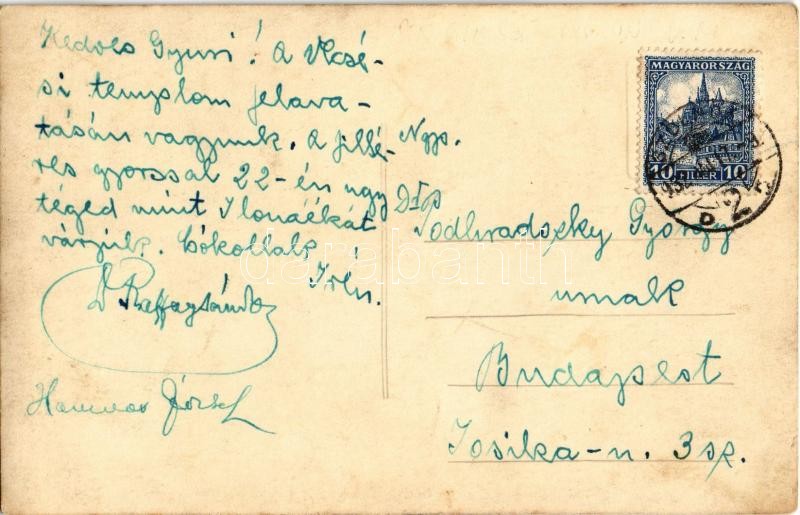 Kedves Gyuri! A
si templom felava-
tásán vagyunk. A fillé-
res gyorssal 22-én úgy
téged mint Ilonáékat
várjuk. Csókollak
Irén.
Dr Raffay Sándor
József
MAGYARORSZÁG
10 FILLÉR 10
Ngys.
Podhradszky György
urnak
Budapest
Jósika-u. 3 sz.
darabanth